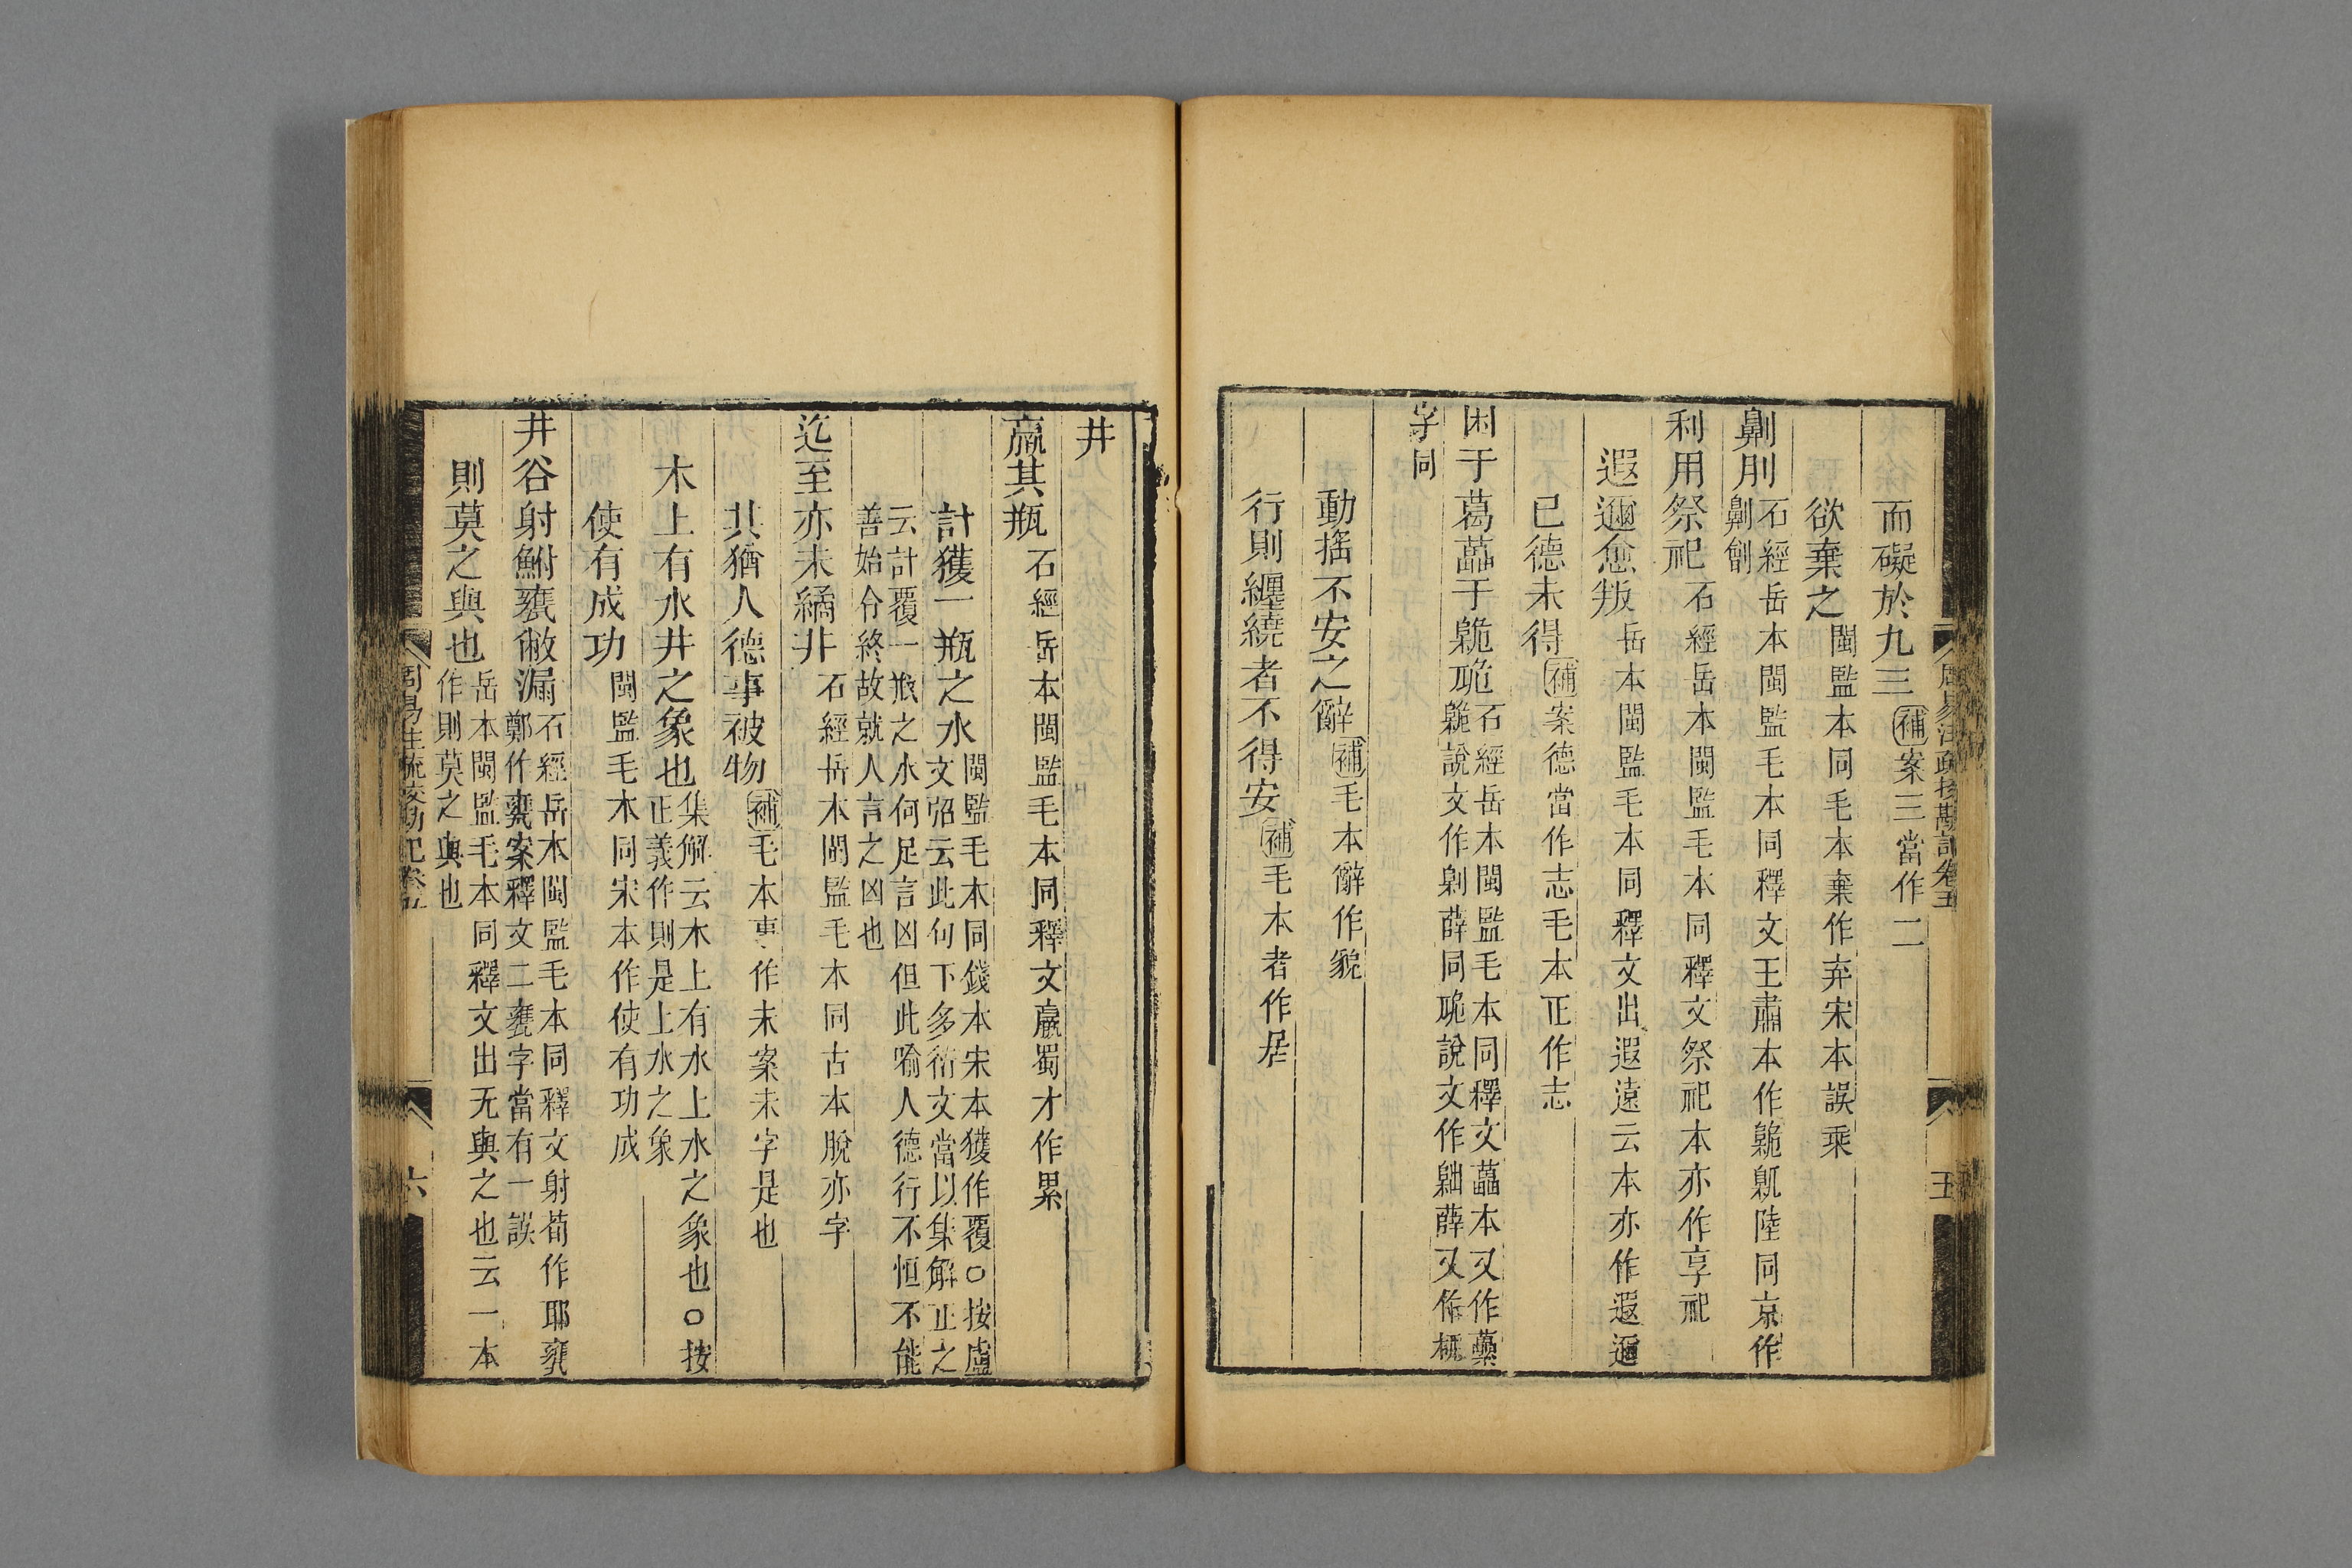 而礙於九三補案三當作二
欲棄之閩監本同毛本棄作弃宋本誤乘
劓刖石經岳本閩監毛本同釋文王肅本作臲𡰈陸同京作劓劊
利用祭祀石經岳本閩監毛本同釋文祭祀本亦作享祀
遐邇愈叛岳本閩監毛本同釋文出遐遠云本亦作遐邇
已德未得補案德當作志毛本正作志
困于葛藟于臲卼石經岳本閩監毛本同釋文藟本又作虆臲說文作劓薛同卼說文作𡰈薛又作杌
字同
動搖不安之辭補毛本辭作貌
行則纏繞者不得安補毛本者作居
周易注疏校勘記卷五
五
井
羸其瓶石經岳本閩監毛本同釋文羸蜀才作累
計獲一瓶之水閩監毛本同錢本宋本獲作覆○按盧文弨云此句下多衍文當以集解正之
云計覆一瓶之水何足言凶但此喻人德行不恒不能善始令終故就人言之凶也
迄至亦未繘井石經岳本閩監毛本同古本脫亦字
其猶人德事被物補毛本事作未案未字是也
木上有水井之象也集解云木上有水上水之象也○按正義作則是上水之象
使有成功閩監毛本同宋本作使有功成
井谷射鮒甕敝漏石經岳本閩監毛本同釋文射荀作耶甕鄭作甕案釋文二甕字當有一誤
則莫之與也岳本閩監毛本同釋文出无與之也云一本作則莫之與也
周易注疏校勘記卷五
六